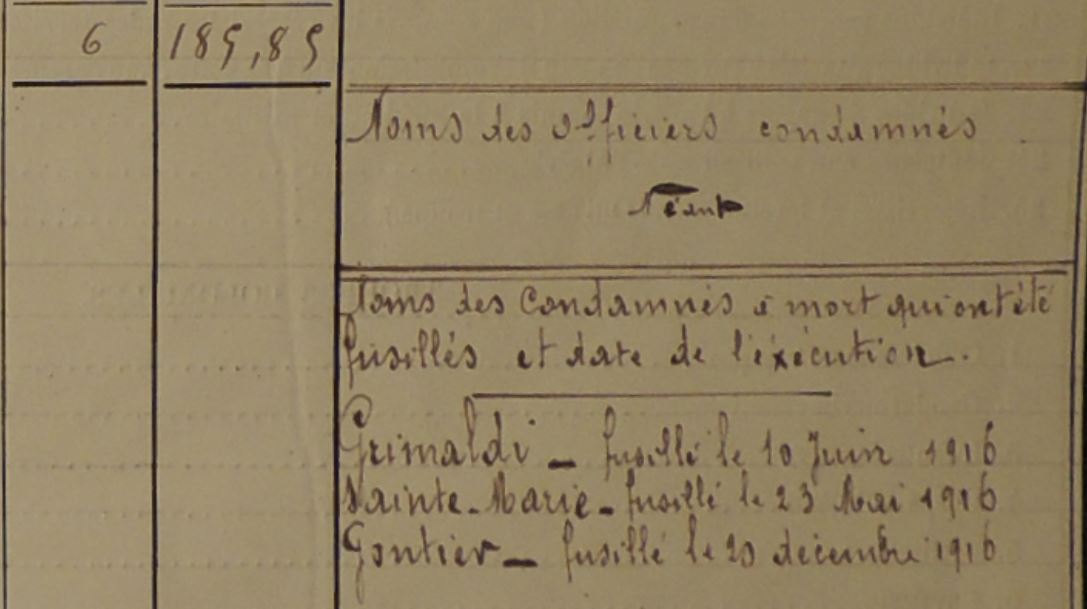 6 185,85
Noms des officiers condamnés
Néant
Noms des Condamnés à mort qui ont été
fusillés et date de l'exécution.
Grimaldi _ fusillé le 10 Juin 1916
Sainte-Marie _ fusillé le 23 Mai 1916
Gontier _ fusillé le 20 décembre 1916